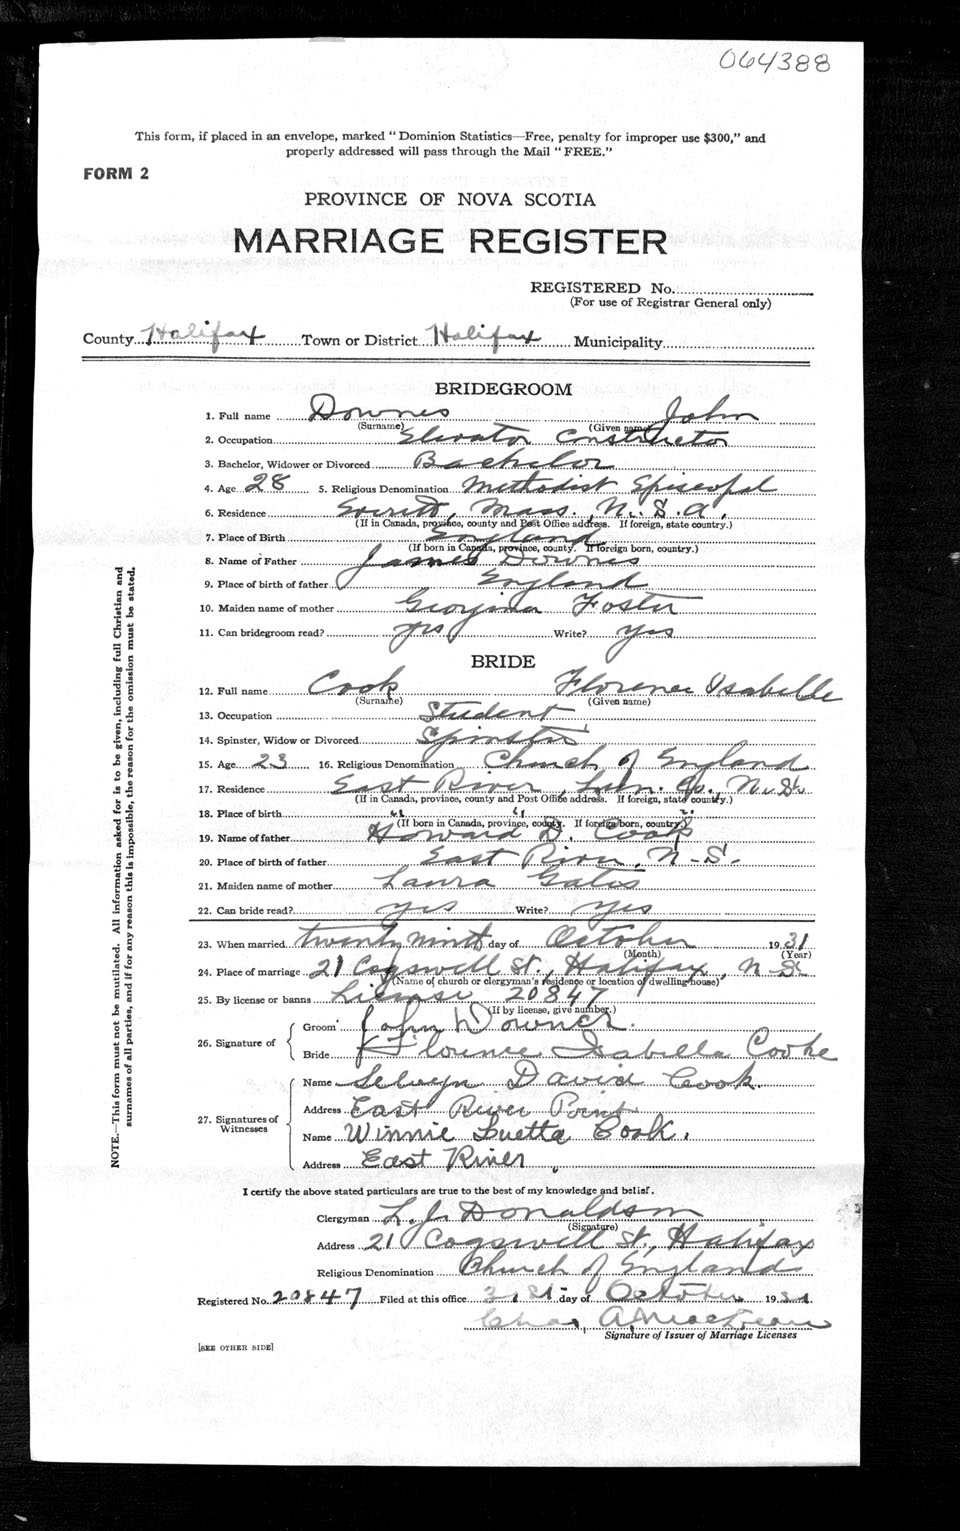 064388
This form, if placed in an envelope, marked "Dominion Statistics—Free, penalty for improper use $300," and
properly addressed will pass through the Mail "FREE."
FORM 2
PROVINCE OF NOVA SCOTIA
MARRIAGE REGISTER
REGISTERED No.
(For use of Registrar General only)
County Halifax Town or District Halifax Municipality
BRIDEGROOM
1. Full name Downes John
(Surname) (Given name)
2. Occupation Elevator Constructor
3. Bachelor, Widower or Divorced Bachelor
4. Age 28 5. Religious Denomination Methodist Episcopal
6. Residence Everett, Mass. U.S.A.
(If in Canada, province, county and Post Office address. If foreign, state country.)
7. Place of Birth England
(If born in Canada, province, county. If foreign born, country.)
8. Name of Father James Downes
9. Place of birth of father England
10. Maiden name of mother Georgina Foster
11. Can bridegroom read? yes Write? yes
BRIDE
12. Full name Cook Florence Isabelle
(Surname) (Given name)
13. Occupation Student
14. Spinster, Widow or Divorced Spinster
15. Age 23 16. Religious Denomination Church of England
17. Residence East River, Lun. Co. N.S.
(If in Canada, province, county and Post Office address. If foreign, state country.)
18. Place of birth " " "
(If born in Canada, province, county. If foreign born, country.)
19. Name of father Howard D. Cook
20. Place of birth of father East River, N-S-
21. Maiden name of mother Laura Gates
22. Can bride read? yes Write? yes
23. When married twenty ninth day of October 1931
(Month) (Year)
24. Place of marriage 21 Cogswell St., Halifax, N-S
(Name of church or clergyman's residence or location of dwelling-house)
25. By license or banns License 20847
(If by license, give number.)
26. Signature of Groom John Downes.
Bride Florence Isabella Cooke
27. Signatures of Witnesses
Name Selwyn David Cook.
Address East River Point
Name Winnie Luetta Cook.
Address East River
I certify the above stated particulars are true to the best of my knowledge and belief.
Clergyman L. J. Donaldson
(Signature)
Address 21 Cogswell St., Halifax
Religious Denomination Church of England
Registered No. 20847 Filed at this office 31st day of October 1931
Chas A MacLean
Signature of Issuer of Marriage Licenses
[SEE OTHER SIDE]
NOTE.—This form must not be mutilated. All information asked for is to be given, including full Christian and
surnames of all parties, and if for any reason this is impossible, the reason for the omission must be stated.